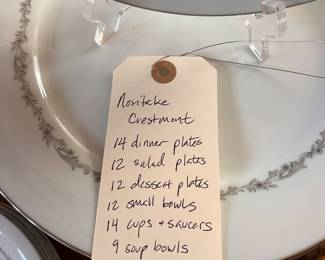 Noritake
Crestmont
14 dinner plates
12 salad plates
12 dessert plates
12 small bowls
14 cups + saucers
9 soup bowls